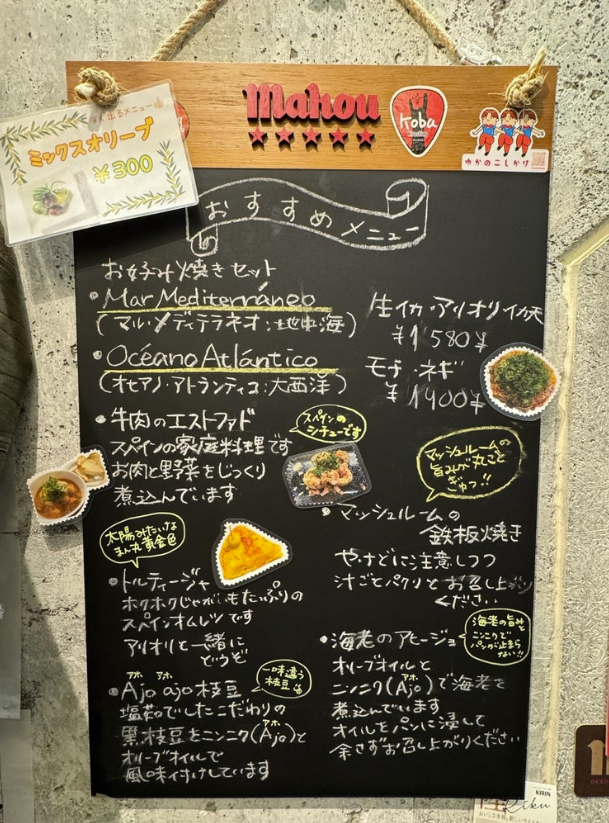 出るメニュー
ミックスオリーブ
¥300
mahou
★★★★★
Koba
ゆかのこしかけ
おすすめメニュー
お好み焼きセット
• Mar Mediterráneo
(マル・メディテラネオ:地中海)
• Océano Atlántico
(オセアノ・アトランティコ:大西洋)
生イカ・アリオリイカ天
¥1580¥
モチ・ネギ
¥1400¥
• 牛肉のエストファド
スペインの家庭料理です
お肉と野菜をじっくり
煮込んでいます
スペインの
シチューです
太陽みたいな
まん丸黄金色
• トルティージャ
ホクホクじゃがいもたっぷりの
スペインオムレツです
アリオリと一緒に
どうぞ
アホ アホ
• Ajo ajo 枝豆
塩茹でしたこだわりの
黒枝豆とニンニク(Ajo)と
アホ
オリーブオイルで
風味付けしています
一味違う
枝豆
マッシュルームの
旨みが丸ごと
ぎゅっ!!
• マッシュルームの
鉄板焼き
やけどに注意しつつ
汁ごとパクリとお召し上がり
ください
海老の旨みと
ニンニクで
パンが止まら
ない!!
• 海老のアヒージョ
オリーブオイルと
アホ
ニンニク(Ajo)で海老を
煮込んでいます
オイルをパンに浸して
余さずお召し上がりください
KIRIN